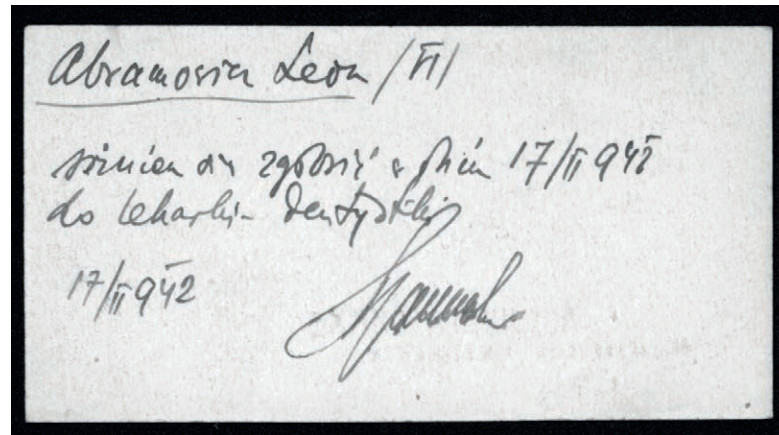 Abramowicz Leon /VI/
winien się zgłosić w dniu 17/II 942
do lekarki dentystki
17/II 942